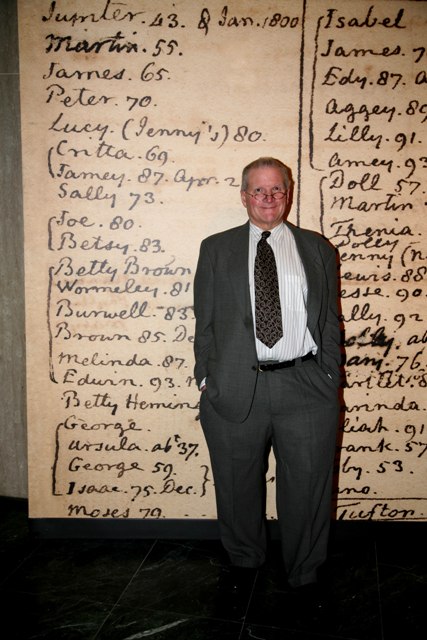 Jupiter. 43. & Jan. 1800
Martin. 55.
James. 65.
Peter. 70.
Lucy. (Jenny's) 80.
Critta. 69.
Jamey. 87. Apr. 2
Sally 73.
Joe. 80.
Betsy. 83.
Betty Brown
Wormeley. 81
Burwell. 83
Brown 85. De
Melinda. 87.
Edwin. 93.
Betty Heming
George.
Ursula. abt 37.
George 59.
Isaac. 75. Dec.
Moses 79.
Isabel
James. 7
Edy. 87. A
Aggey. 89
Lilly. 91.
Amey. 93
Doll 57.
Martin
Thenia
Dolly
enny (n
ewis. 88
esse. 90
ally. 92
ab
any. 76
nnda.
liah. 91
ank. 57
by. 53.
no.
Tufton.